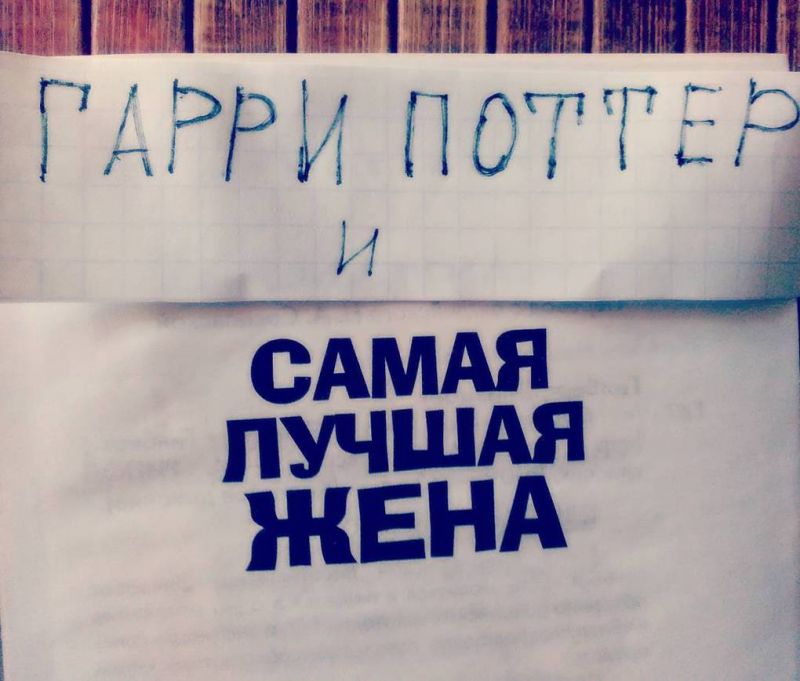 ГАРРИ ПОТТЕР
И
САМАЯ
ЛУЧШАЯ
ЖЕНА